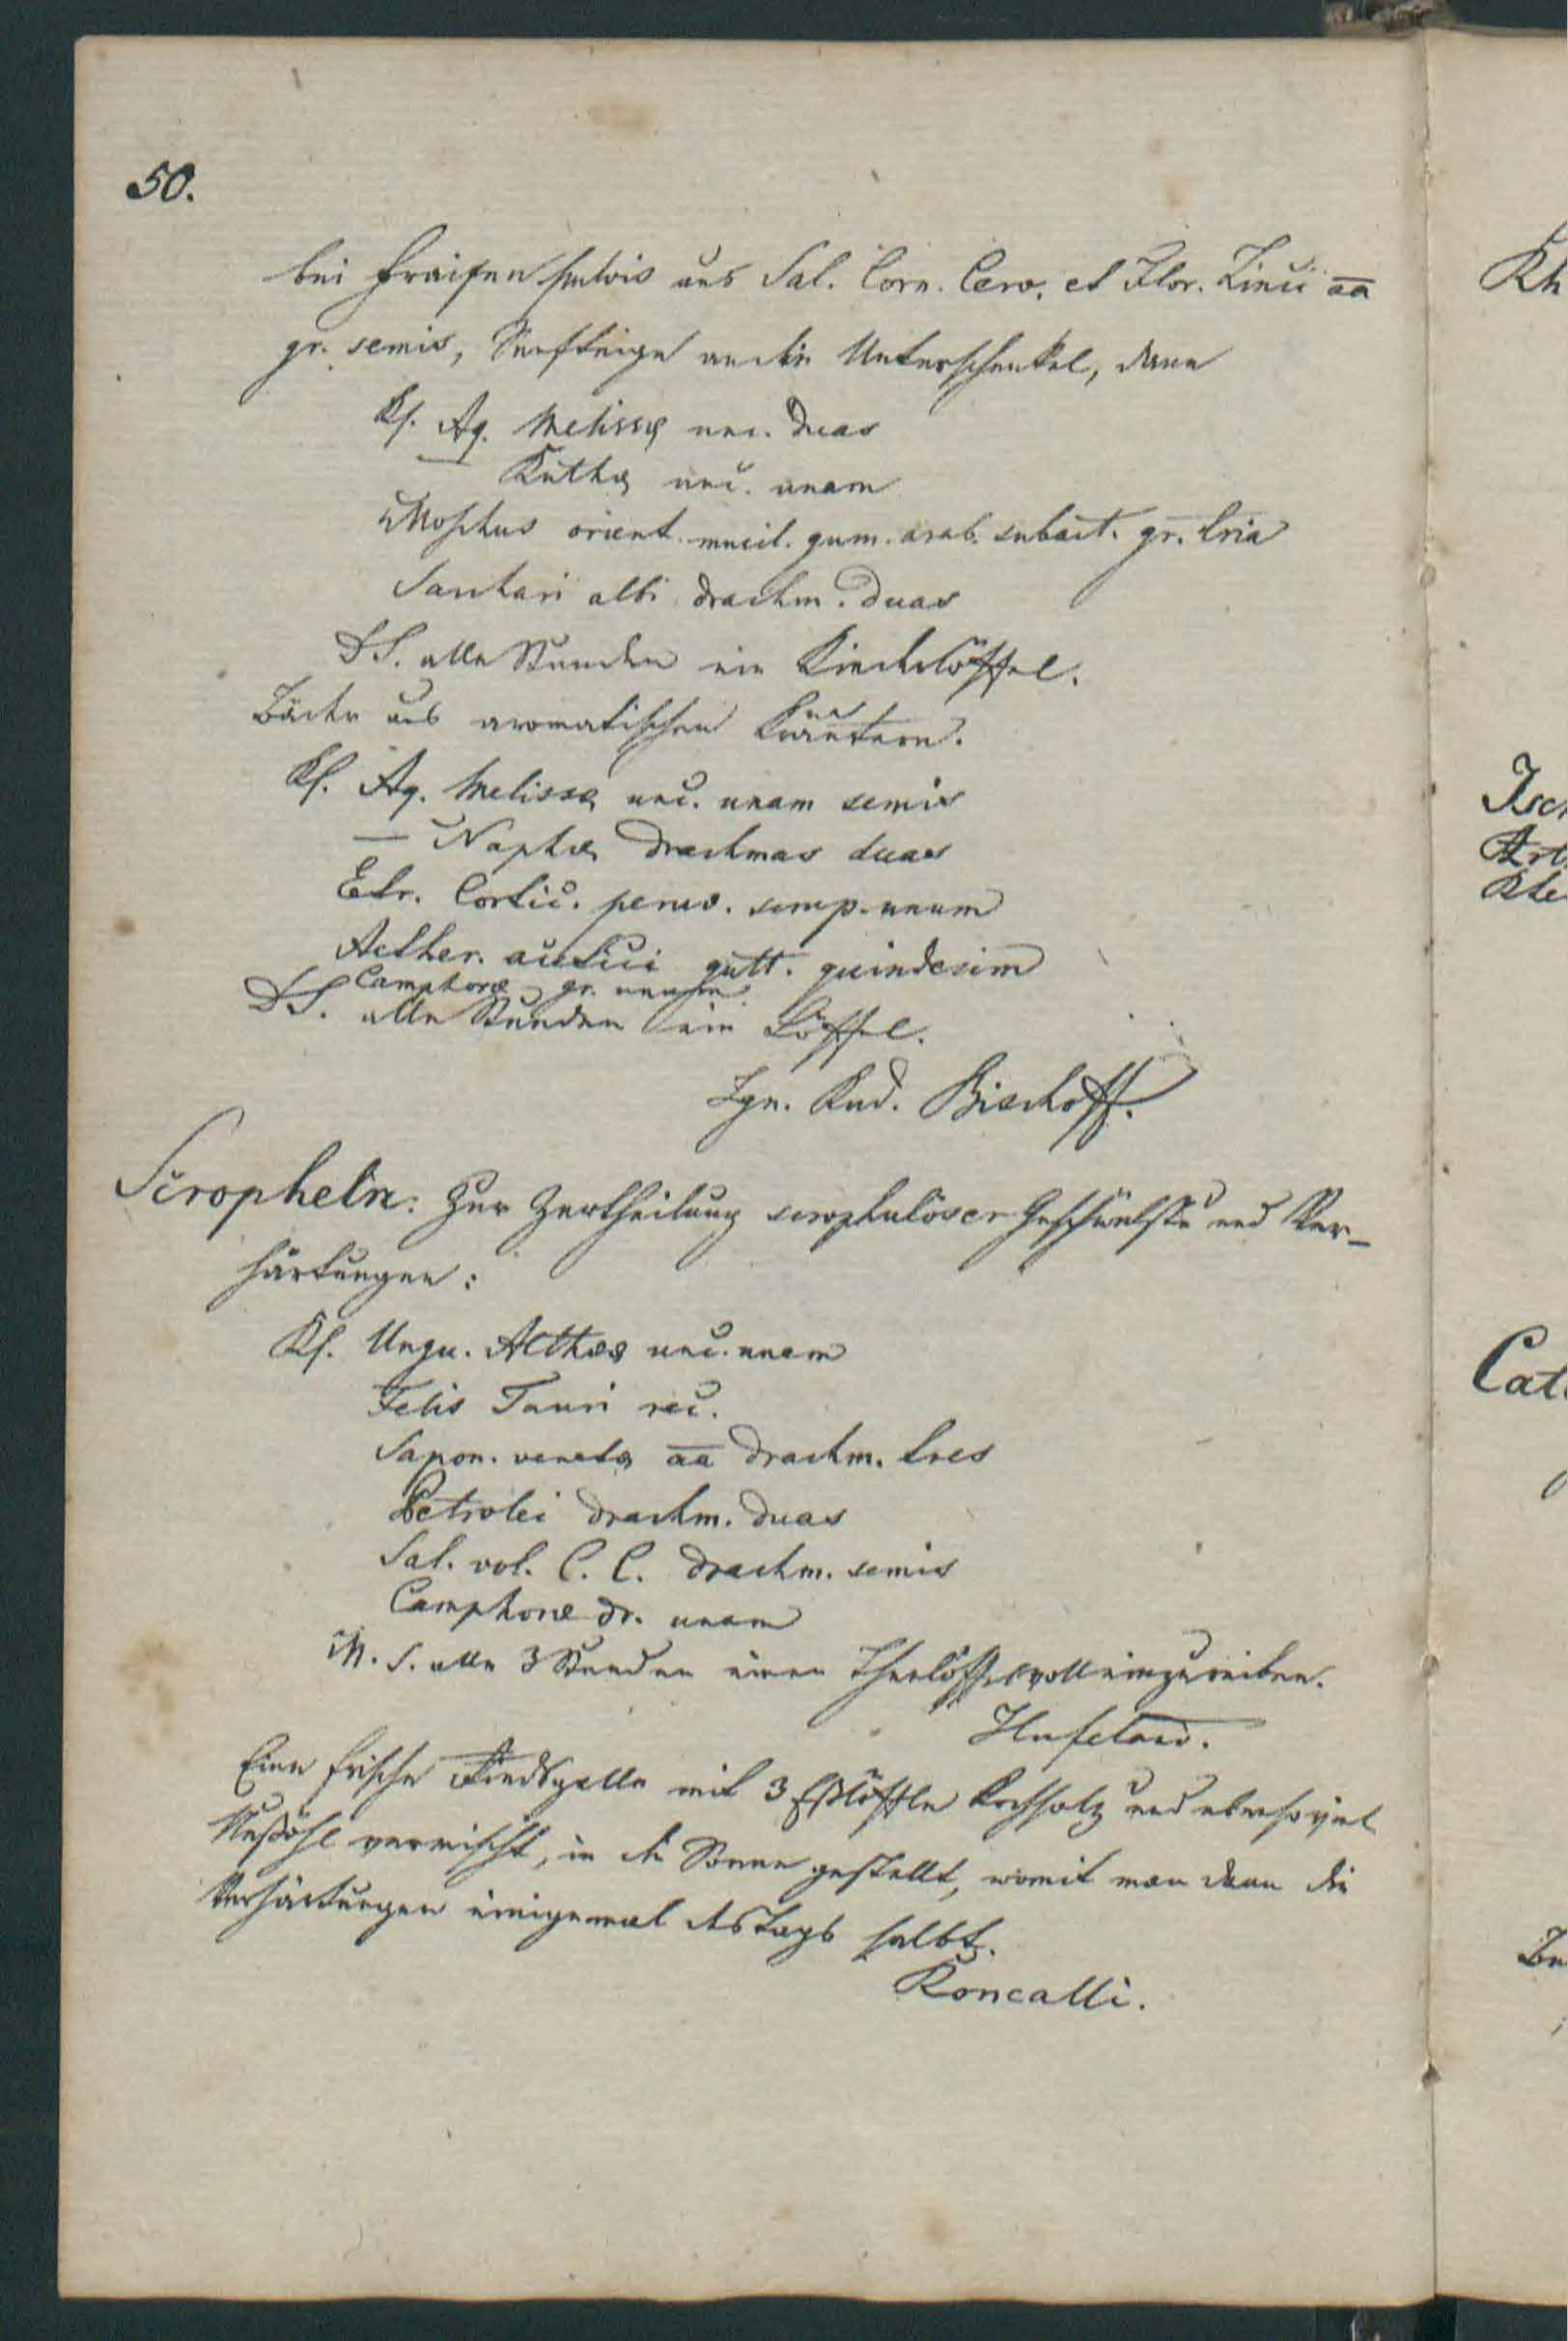 50.
bei Fraisen pulvis aus Sal. Corn. Cerv. et Flor. Zinci aa
gr. semis, Senfteige an die Unterschenkel, dann
Rp. Aq. Melissæ unc. duas
— Ruthæ unc. unam
Moschus orient. mucil. gum. arab. subact. gr. tria
Sachari albi drachm. duas
DS. alle Stunden ein Kinderlöffel.
Bäder aus aromatischen Kräutern.
Rp. Aq. Melissæ unc. unam semis
— Naphæ drachmas duas
Extr. Cortic. peruv. scrup. unum
Aether. acetici gutt. quindecim
Camphoræ gr. unum
DS. alle Stunden ein Löffel.
Ign. Rud. Bischoff.
Scropheln: Zur Zertheilung scrophulöser Geschwülste und Ver-
härtungen:
Rp. Ungu. Altheæ unc. unam
Felis Tauri rec.
Sapon. venetæ aa drachm. tres
Petrolei drachm. duas
Sal. vol. C. C. drachm. semis
Camphoræ dr. unam
M. S. alle 3 Stunden einen Theelöffel voll einzureiben.
Hufeland.
Eine frische Rindsgalle mit 3 Eßlöffln Kochsalz und ebensoviel
Nußöhl vermischt, in die Sonne gestellt, womit man dann die
Verhärtungen einigemal des Tags salbt.
Roncalli.
Rh
Isch
Art
Rhe
Cat